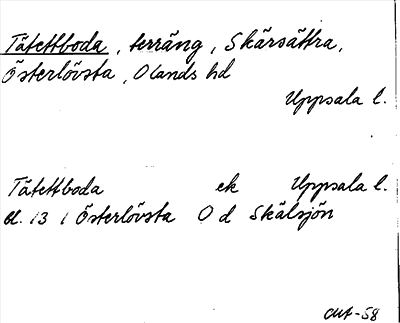 Tätettboda, terräng, Skärsättra,
Österlövsta, Olands hd
Uppsala l.
Tätettboda ek Uppsala l.
bl. 13 i Österlövsta O d Skälsjön
-58